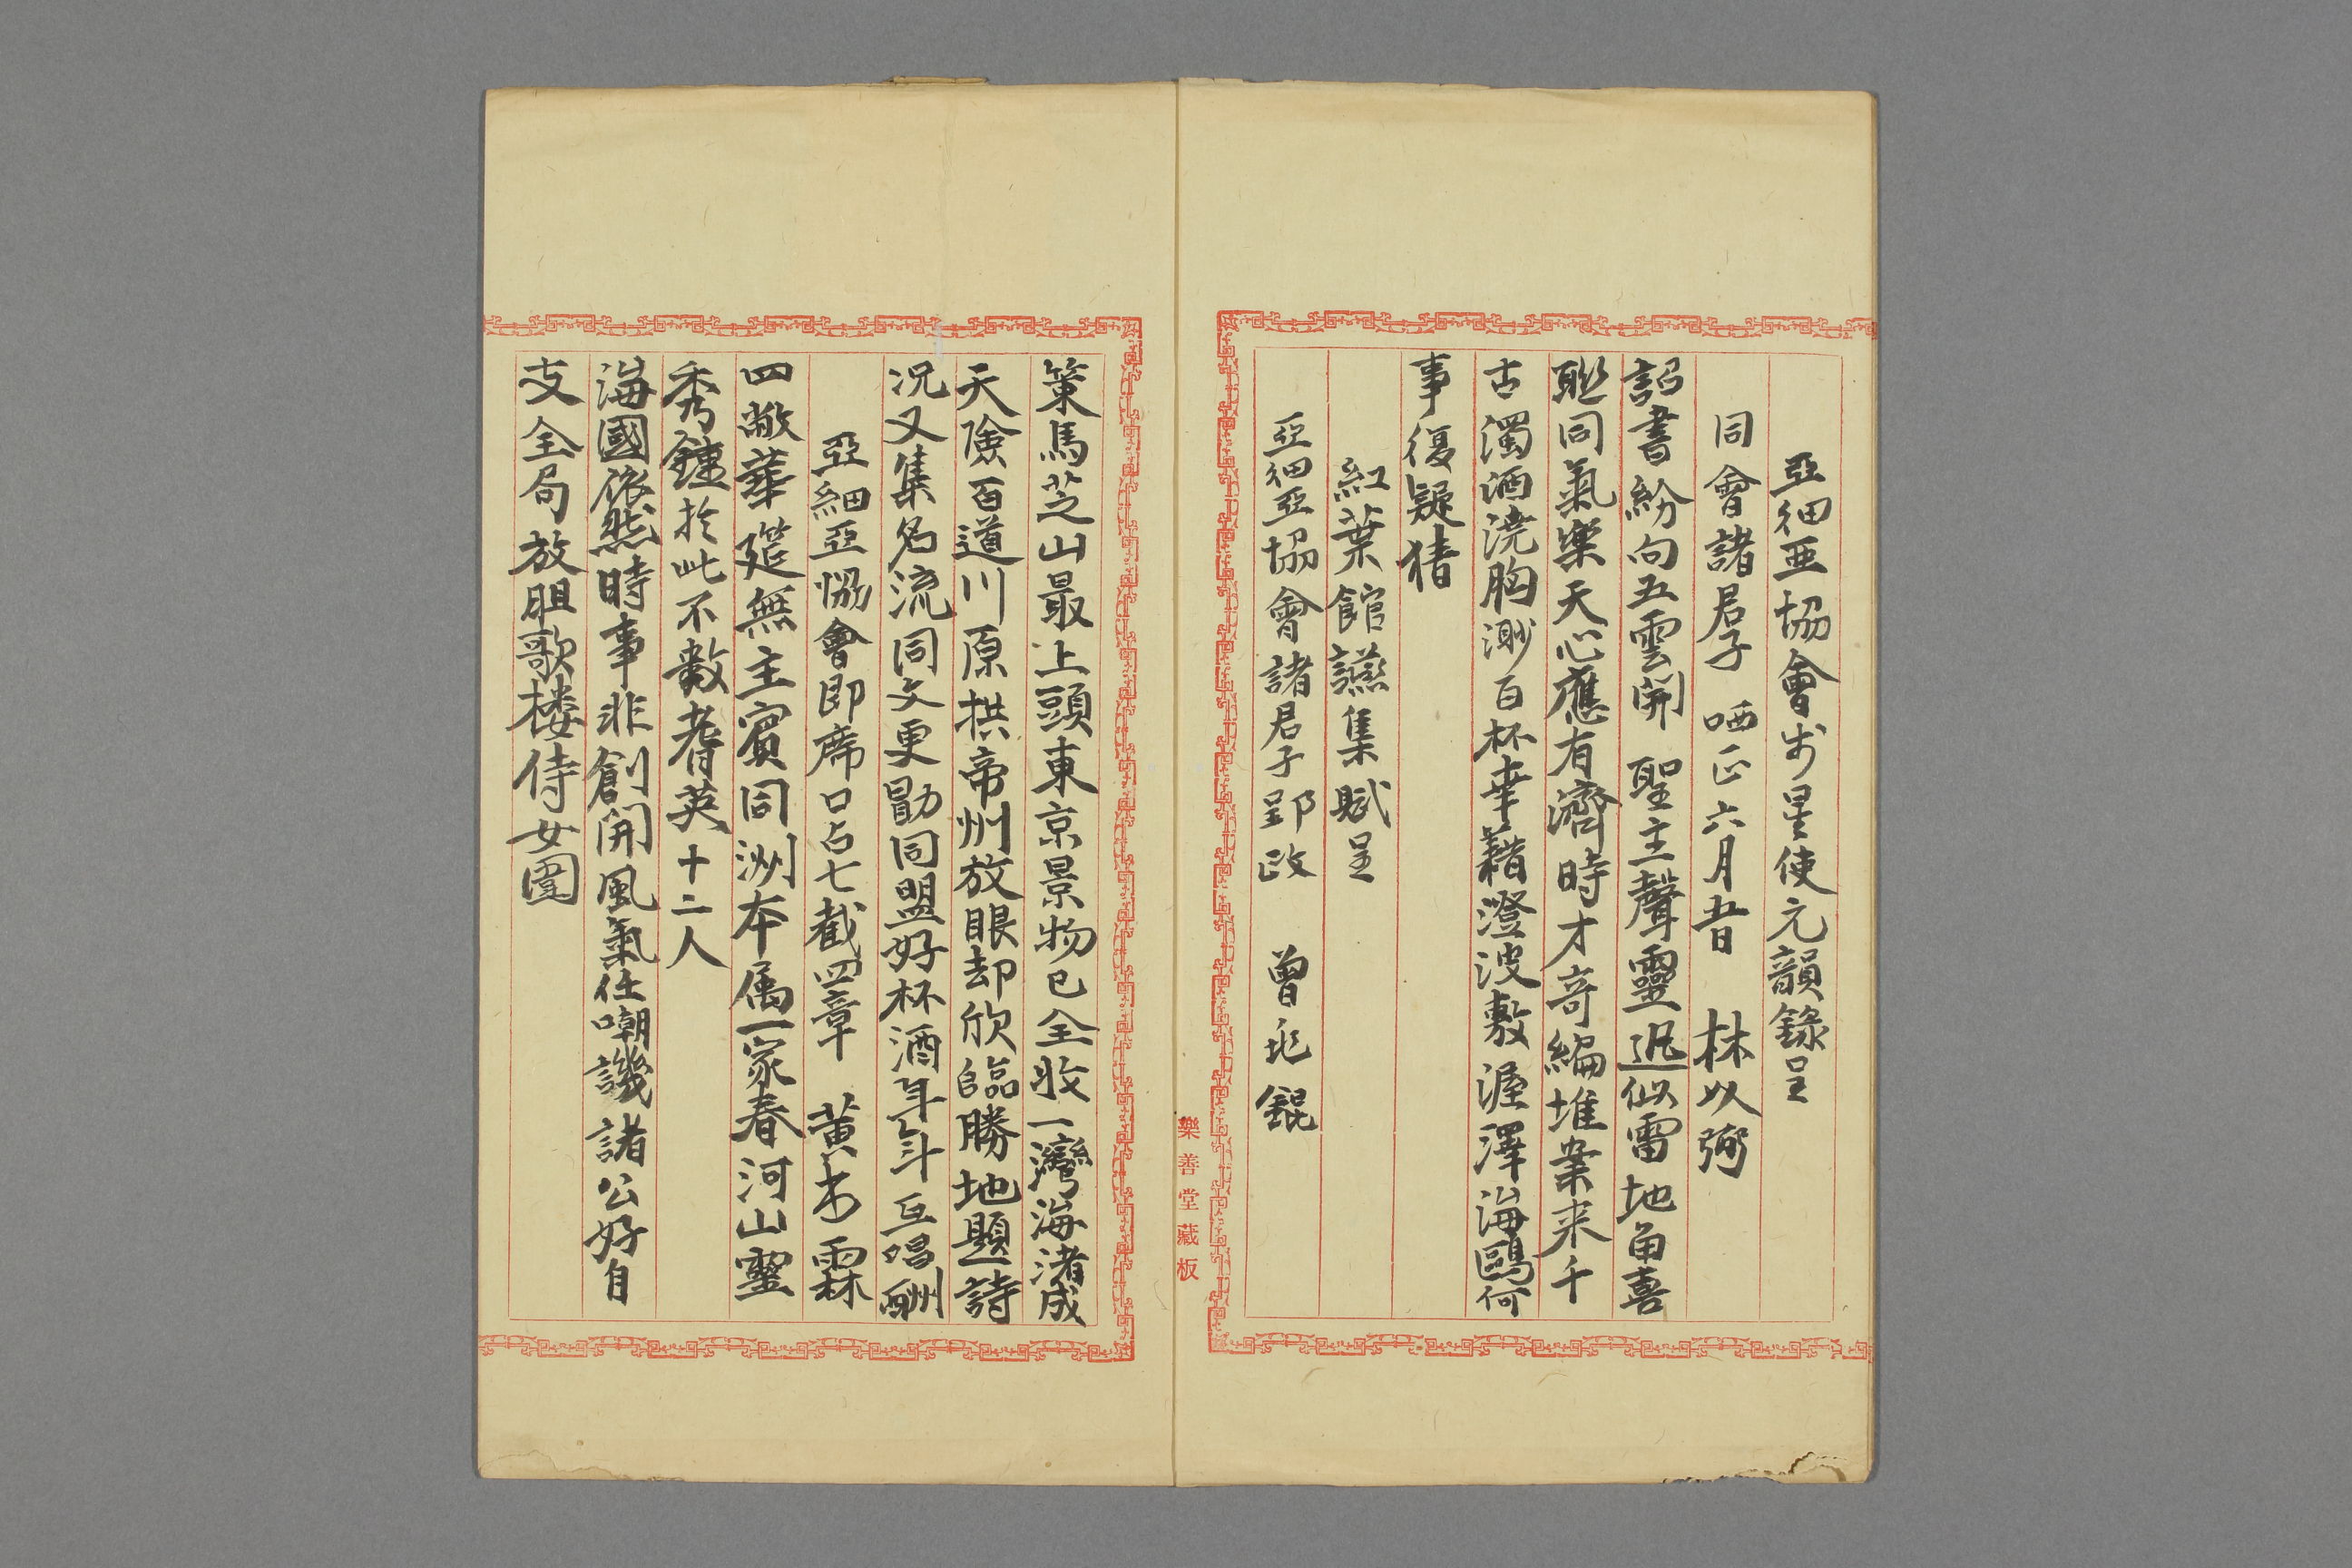 亞細亜協會步星使元韻錄呈
同會諸君子 哂正六月十日 林以彌
詔書紛向五雲開 聖主聲靈迅似雷地角喜
聯同氣樂天心應有濟時才奇編堆案来千
古濁酒澆胸渺百杯幸藉澄波敷渥澤海鷗何
事復疑猜
紅葉館讌集賦呈
亞細亞協會諸君子郢政 曾兆錕
樂善堂藏板
策馬芝山最上頭東京景物已全收一灣海渚成
天險百道川原拱帝州放眼却欣臨勝地題詩
况又集名流同文更勖同盟好杯酒年年互唱酬
亞細亞恊會即席口占七截四章 黄 霖
四敞華筵無主賓同洲本属一家春河山靈
秀鍾於此不數耆英十二人
海國依然時事非創開風氣任嘲譏諸公好自
支全局放胆歌楼侍女圍